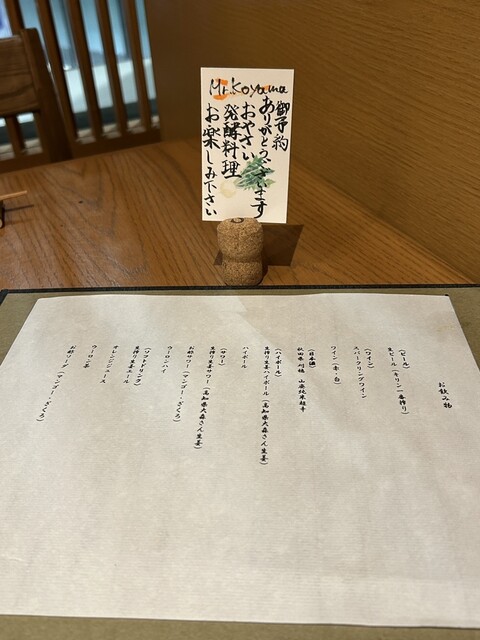 Mr.Koyama
御予約
ありがとうございます
おやさい
発酵料理
お楽しみ下さい
お飲み物
(ビール)
生ビール(キリン一番搾り)
(ワイン)
スパークリングワイン
ワイン(赤・白)
(日本酒)
秋田県 刈穂 山廃純米超辛
(ハイボール)
生搾り生姜ハイボール(高知県大森さん生姜)
ハイボール
(サワー)
生搾り生姜サワー(高知県大森さん生姜)
お酢サワー(マンゴー・ざくろ)
ウーロンハイ
(ソフトドリンク)
生搾り生姜エール
オレンジジュース
ウーロン茶
お酢ソーダ(マンゴー・ざくろ)